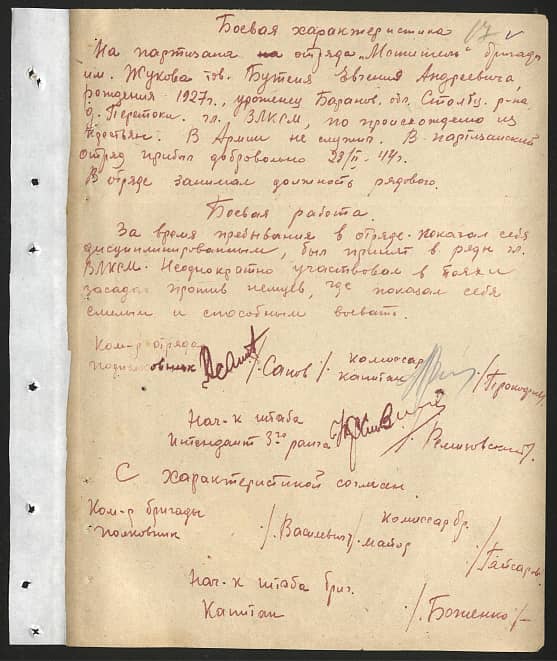 Боевая характеристика 17
На партизана отряда „Мститель" бригады
им. Жукова тов. Бутеня Евгения Андреевича
рождения 1927г., уроженец Баранов. обл. Столбц. р-на
д. Перетоки. чл. ВЛКСМ, по происхождению из
крестьян. В Армии не служил. В партизанский
отряд прибыл добровольно 28/II-44г.
В отряде занимал должность рядового.
Боевая работа.
За время пребывания в отряде показал себя
дисциплинированным, был принят в ряды чл.
ВЛКСМ. Неоднократно участвовал в боях и
засадах против немцев, где показал себя
смелым и способным воевать.
Ком-р отряда
подполковник /Санов/ комиссар
капитан
Нач-к штаба
Интендант 3го ранга /Ремизовский/
С характеристикой согласен
Ком-р бригады
полковник /Василевич/ комиссар бр.
майор /Гайсаров
Нач-к штаба бриг.
Капитан /Боженко/